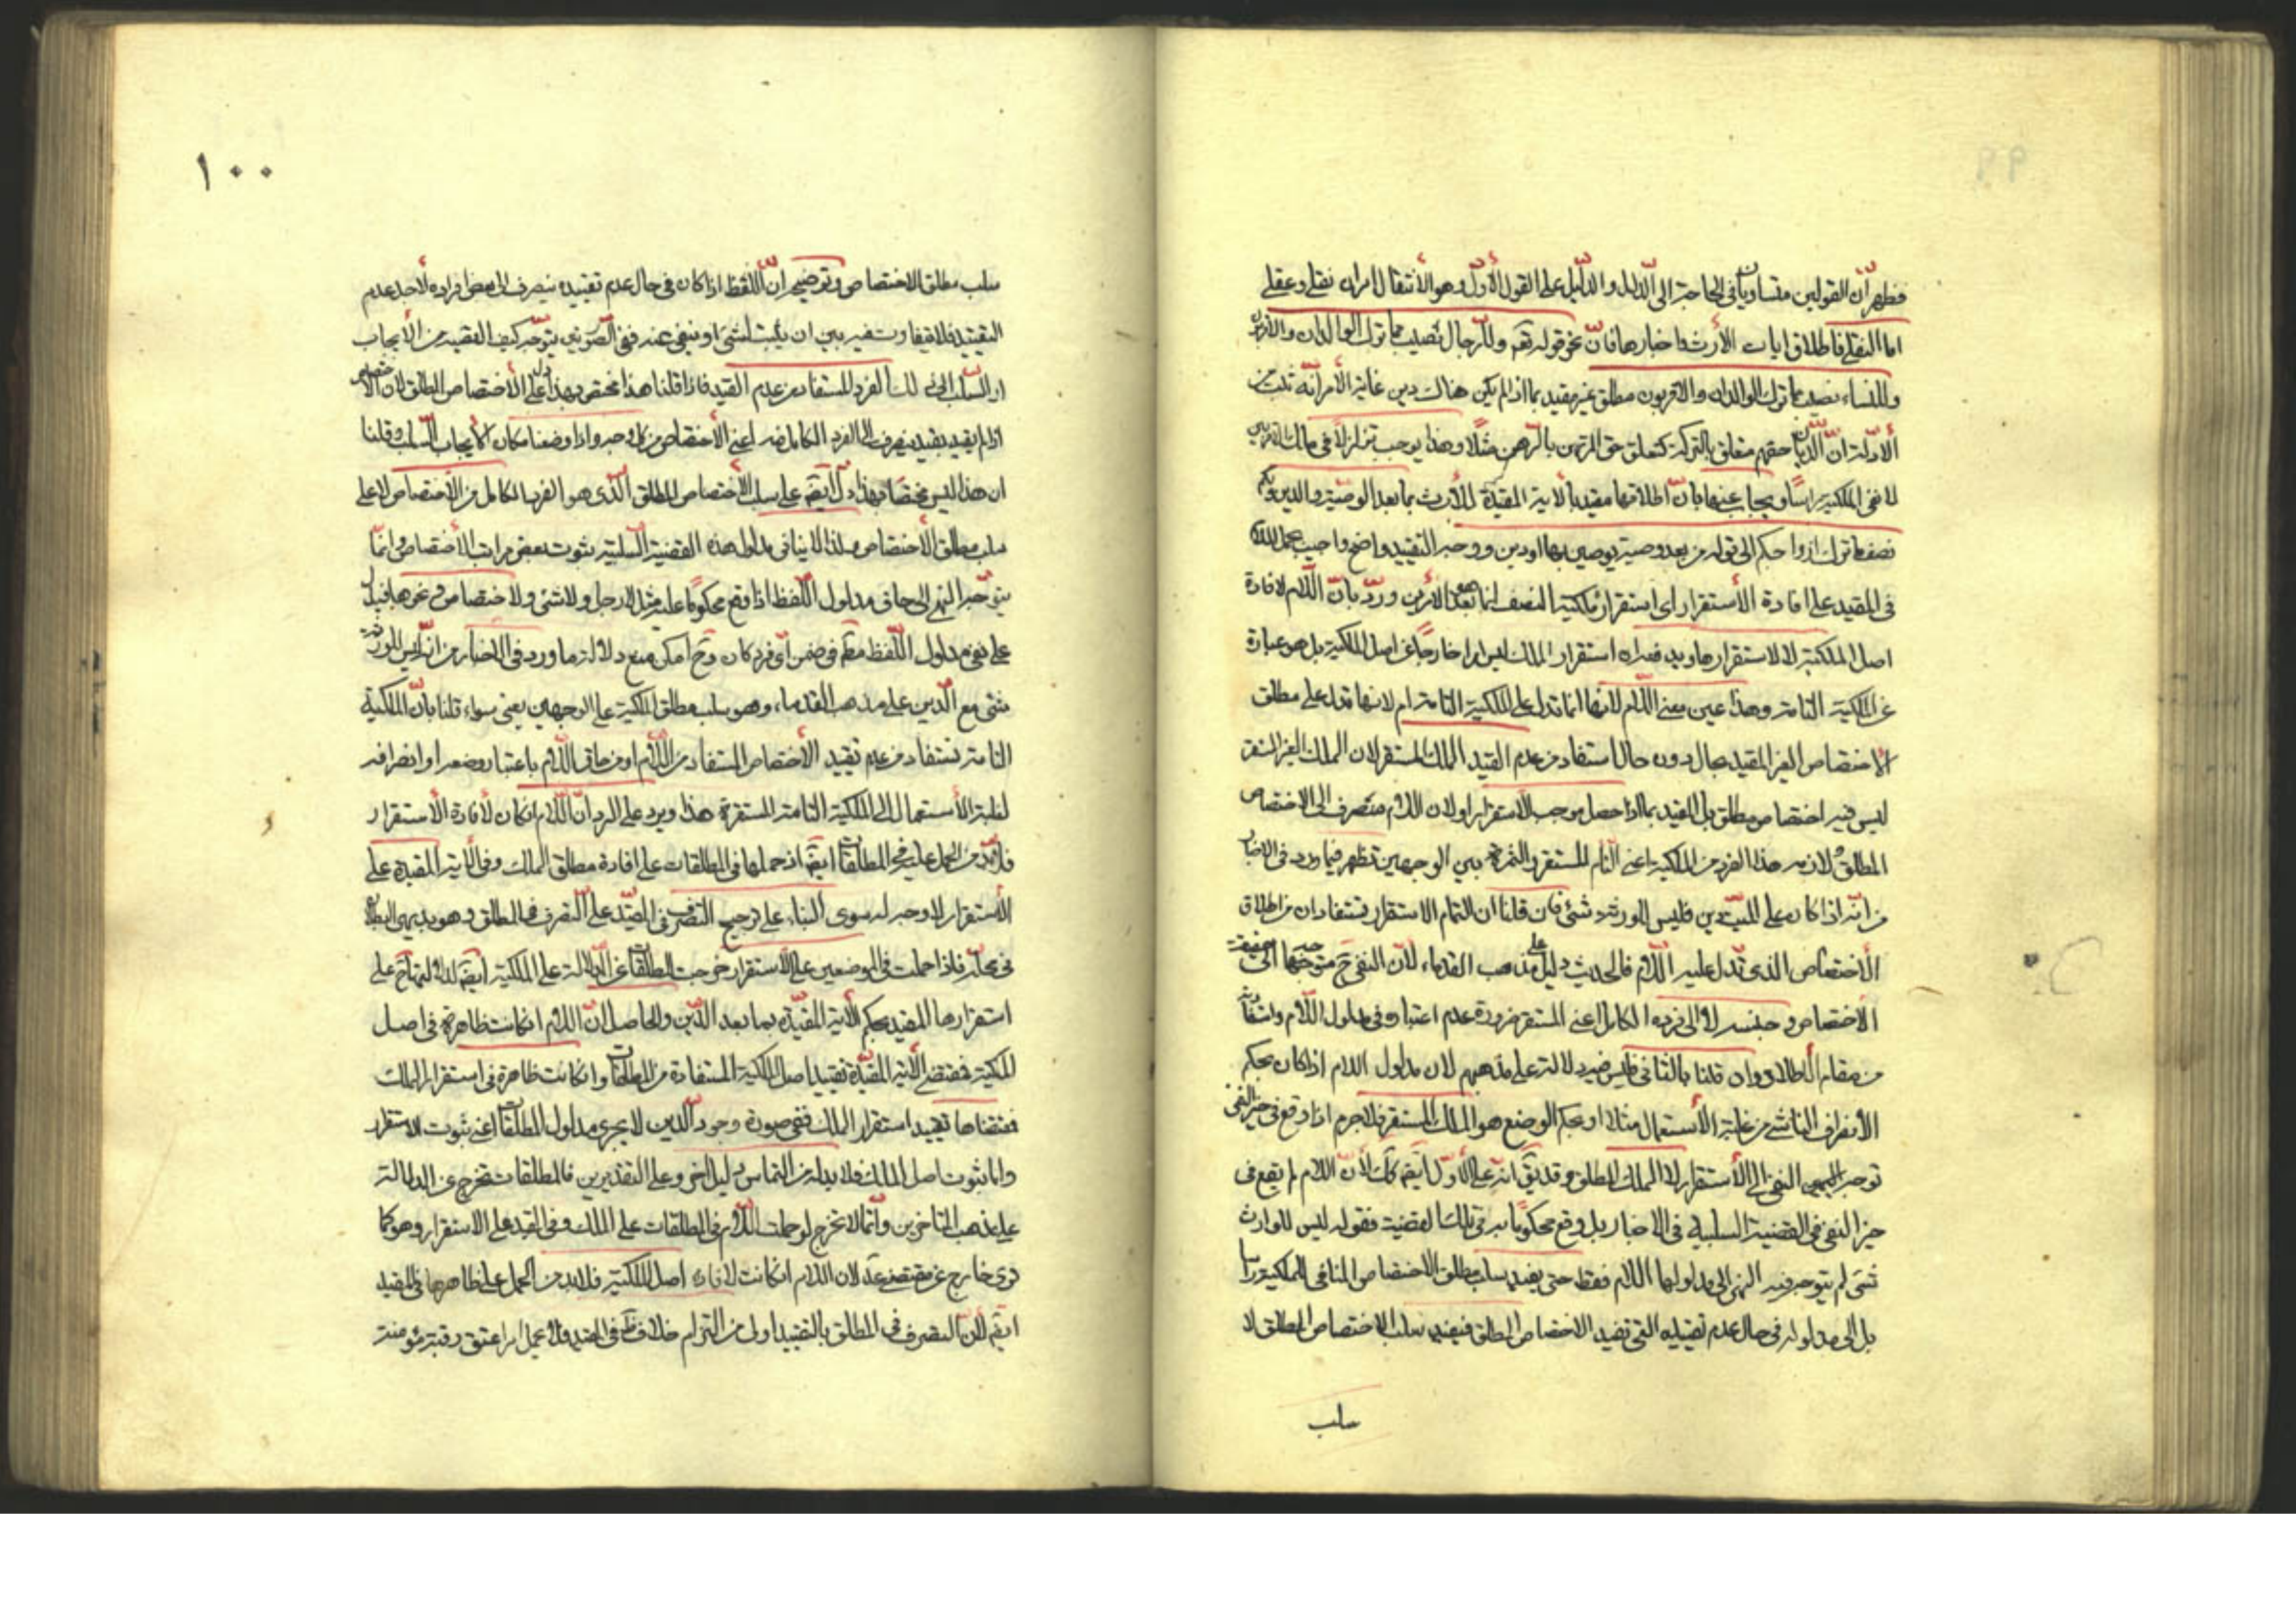 فظهر أن القولين متساويان في الحاجة الى الدليل والدليل على القول الأول وهو الأنتقال امران نقلي وعقلي
اما النقلي فاطلاق ايات الأرث واخبارها فان نحو قوله تعم وللرجال نصيب مما ترك الوالدان والاقربون
وللنساء نصيب مما ترك الوالدان والاقربون مطلق غير مقيد بما اذا لم يكن هناك دين غاية الأمر انه ثبت من
الأدلة ان الديان حقهم متعلق بالتركة كتعلق حق المرتهن بالرهن مثلا وهذا يوجب تزلزلا في مالك
لا نفي الملكية راسا ويجاب عنها بان اطلاقها مقيد بالاية المقيدة للأرث بما بعد الوصية والدين ولكم
نصف ما ترك ازواجكم الى قوله من بعد وصية يوصين بها او دين ووجه التقييد واضح واجيب بحمل اللام
في المقيد على افادة الأستقرار اى استقرار ملكية النصف انما بعد الأمرين ورد بان اللام لافادة
اصل الملكية لا لاستقرارها ويدفعه ان استقرار الملك ليس امرا خارجا عن اصل الملكية بل هو عبارة
عن الملكية التامة وهذا عين معنى اللام لانها انما تدل على الملكية التامة ام لانها تدل على مطلق
الاختصاص الغير المقيد بحال دون حال استفاد من عدم القيد الملك المستقر لان الملك الغير المستقر
ليس فيه اختصاص مطلق بل المقيد بما اذا حصل موجب الأستقرار اولان اللام منصرف الى الاختصاص
المطلق لانه هذا الفرد من الملكية اعني التام المستقر والثمرة بين الوجهين تظهر فيما ورد في الاخبار
من انه اذا كان على الميت دين فليس للورثة شئ فان قلنا ان التمام الاستقرار تستفادان من اطلاق
الأختصاص الذى تدل عليه اللام فالحديث دليل على مذهب القدماء لأن النفي ح متوجها الى حقيقة
الأختصاص وجنسه لا الى فرده الكامل اعني المستقر ضرورة عدم اعتباره في مدلول اللام وانتفائه
من مقام الاطلاق وان قلنا بالثاني فليس فيه دلالة على مذهبهم لان مدلول اللام اذا كان بحكم
الأنصراف الناشي من غلبة الأستعمال مثلا او بحكم الوضع هو الملك المستقر فلا جرم اذا وقع في حيز النفي
توجه النفي الى الأستقرار لا الملك المطلق وقد يق انه على الأول ايضم كك لأن اللام لم يقع في
حيز النفي في القضية السلبية في الاخبار بل وقع محكوما به في تلك القضية فقوله ليس للوارث
شئ لم يتوجه فيه النهى الى مدلولها اللام فقط حتى يفيد سلب مطلق الاختصاص المنافي للملكية راسا
بل الى مدلوله في حال عدم تقييده التي تفيد الاختصاص المطلق فيفيد سلب الاختصاص المطلق لا
سلب
١٠٠
سلب مطلق الاختصاص وتوضيحه ان اللفظ اذا كان في حال عدم تقييده ينصرف الى بعض افراده لأحد عدم
التقييد فلا يتفاوت فيه بين ان يثبت لشئ او ينفي عنه ففي الصورتين يتوجه كيف القضية من الأيجاب
او السلب الى ذلك الفرد المستفاد من عدم القيد فاذا قلنا هذا مختص بهذا دل على الأختصاص المطلق لان الاختصاص
اذا لم يقيد بقيد ينصرف الى الفرد الكامل منه اعني الأختصاص من كل وجه واذا وضعنا مكان الأيجاب السلب وقلنا
ان هذا ليس مختصا بهذا دل ايضم على سلب الأختصاص المطلق الذى هو الفرد الكامل من الأختصاص لا على
سلب مطلق الأختصاص ولذا لا ينافي مدلول هذه القضية السلبية ثبوت بعض مراتب الأختصاص وانما
يتوجه النهى الى حاق مدلول اللفظ اذا وقع محكوما عليه مثل لا رجل ولا شئ ولا اختصاص ونحوها فيدل
على نفي مدلول اللفظ مطم في ضمن اى فرد كان وح امكن منع دلالة ما ورد في الاخبار من انه ليس للورثة
شئ مع الدين على مذهب القدماء وهو سلب مطلق الملكية على الوجهين يعني سواء قلنا بان الملكية
التامة تستفاد من عدم تقييد الأختصاص المستفاد من اللام او من حاق اللام باعتبار وضعه او انصرافه
لغلبة الأستعمال الى الملكية التامة المستقرة هذا ويرد على الرد ان اللام ان كان لأفادة الأستقرار
فلا بد من الحمل عليه في المطلقات ايضم اذ حملها في المطلقات على افادة مطلق الملك وفي الأية المقيدة على
الأستقرار لا وجه له سوى البناء على ترجيح التصرف في المقيد على التصرف في المطلق وهو بديهى البطلان
في محله فاذا حملت في الموضعين على الأستقرار خرجت المطلقات عن الدلالة على الملكية ايضم لدلالتها ح على
استقرارها المقيد بحكم الأية المقيدة بما بعد الدين والحاصل ان اللام ان كانت ظاهرة في اصل
الملكية فمقتضى الأية المقيدة تقييد اصل الملكية المستفادة من المطلقات وان كانت ظاهرة في استقرار الملك
فمقتضاها تقييد استقرار الملك ففي صورة وجود الدين لا يجرى مدلول المطلقات اعني ثبوت الاستقرار
واما ثبوت اصل الملك فلا بد له من التماس دليل اخر وعلى التقديرين فالمطلقات تخرج عن الدلالة
على مذهب المتاخرين وانما لا تخرج لو حملت اللام في المطلقات على الملك وفي المقيد على الاستقرار وهو كما
ترى خارج عن مقتضى لان اللام ان كانت لافادة اصل الملكية فلا بد من الحمل على ظاهرها في المقيد
ايضم لأن التصرف في المطلق بالتقييد اولى من التزام خلاف ظ في المقيد فلا يحمل اعتق رقبة مؤمنة